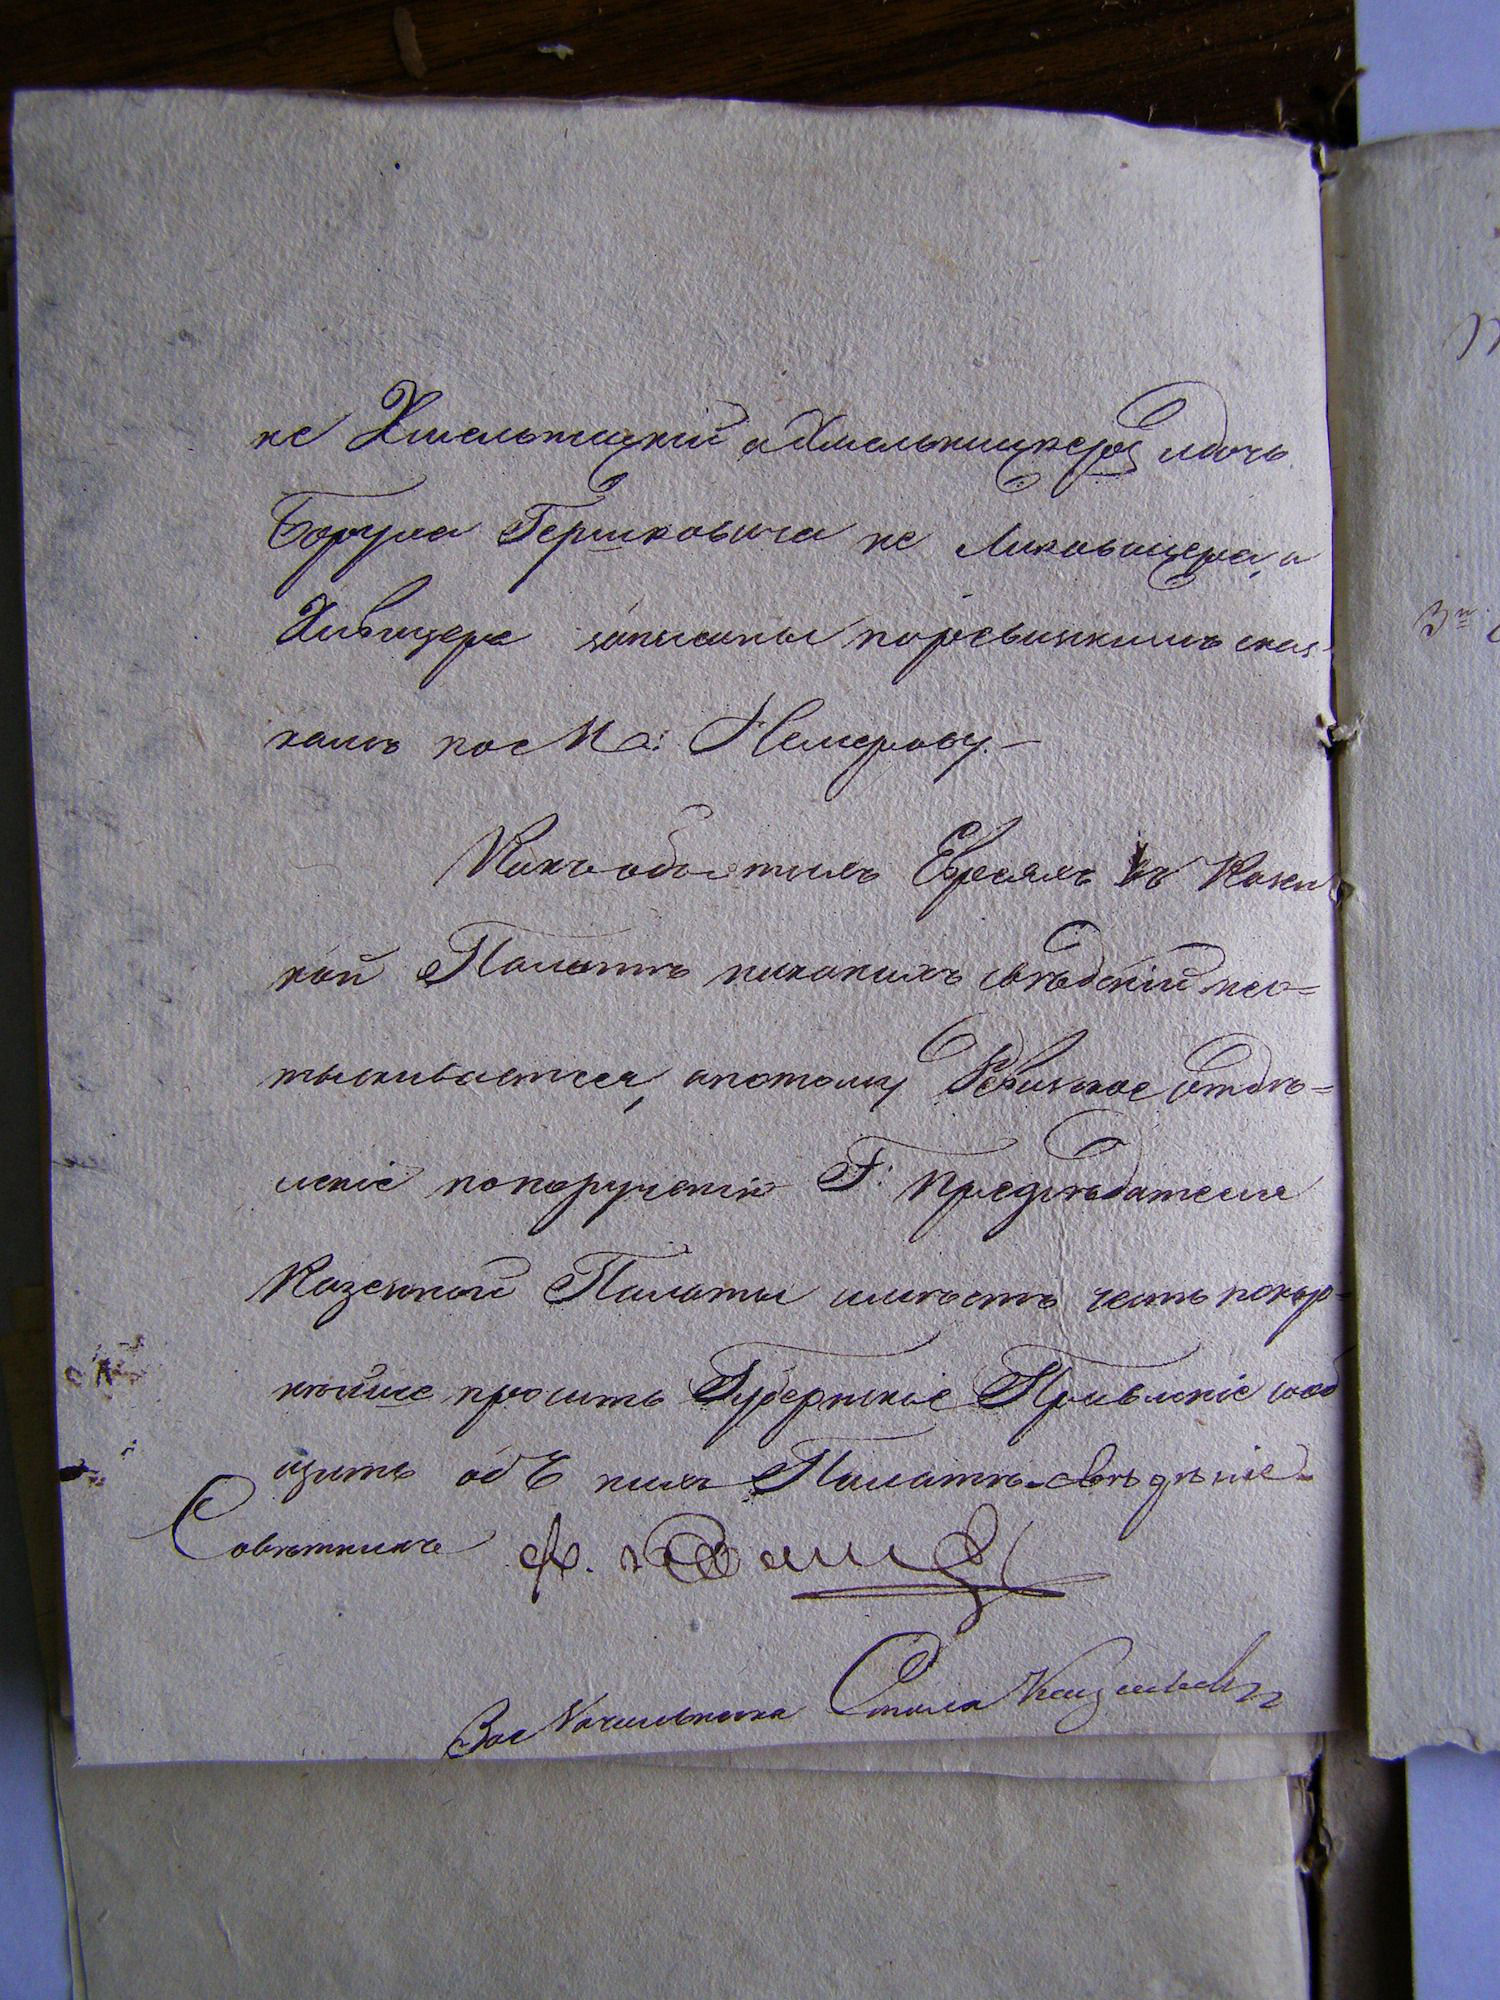 не Хмельницкій а Хмельницкеръ и дочь
Боруха Гершковича не Ликавицера, а
Хивицера записаны поревизкимъ сказ-
камъ по М: Немерову.—
Какъ обо этихъ Евреяхъ въ Казен
ной Палатѣ никакихъ свѣденій неo=
тыскивается, апотому Ревизское отдѣ=
леніе попорученію Г: Председателя
Казенной Палаты имѣетъ честь покор=
нѣйше просить Губернское Правленіе сооб
щить объ нихъ Палатѣ свѣдѣніе
Совѣтникъ
За Начальника Стола
3<sup>го</sup>